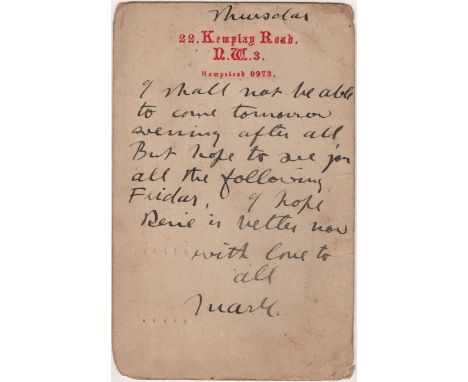 Thursday
22, Kemplay Road,
N.W.3.
Hampstead 0973.
I shall not be able
to come tomorrow
evening after all
But hope to see you
all the following
Friday, I hope
is better now
with love to
all
Mark.